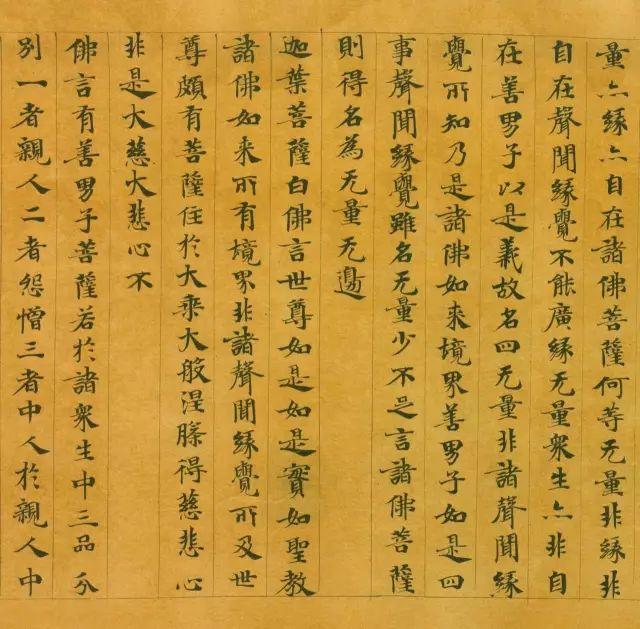 量亦緣亦自在諸佛菩薩何等无量非緣非
自在聲聞緣覺不能廣緣无量衆生亦非自
在善男子以是義故名四无量非諸聲聞緣
覺所知乃是諸佛如來境界善男子如是四
事聲聞緣覺雖名无量少不足言諸佛菩薩
則得名為无量无邊
迦葉菩薩白佛言世尊如是如是實如聖教
諸佛如來所有境界非諸聲聞緣覺所及世
尊頗有菩薩住於大乘大般涅槃得慈悲心
非是大慈大悲心不
佛言有善男子菩薩若於諸衆生中三品分
別一者親人二者怨憎三者中人於親人中